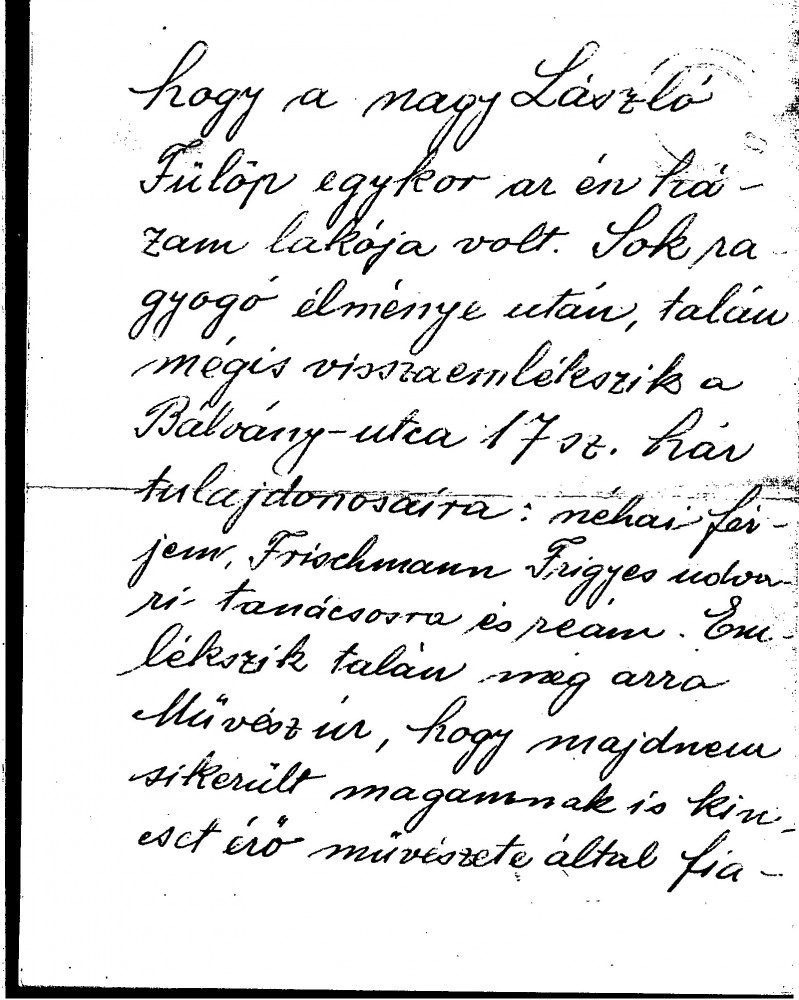 hogy a nagy László
Fülöp egykor az én há-
zam lakója volt. Sok ra
gyogó élménye után, talán
mégis visszaemlékszik a
Bálvány-utca 17 sz. ház
tulajdonosaira: néhai fér-
jem, Frischmann Frigyes udva-
ri- tanácsosra és reám. Em-
lékszik talán még arra
Művész úr, hogy majdnem
sikerült magamnak is kin-
cset érő művészete által fia-